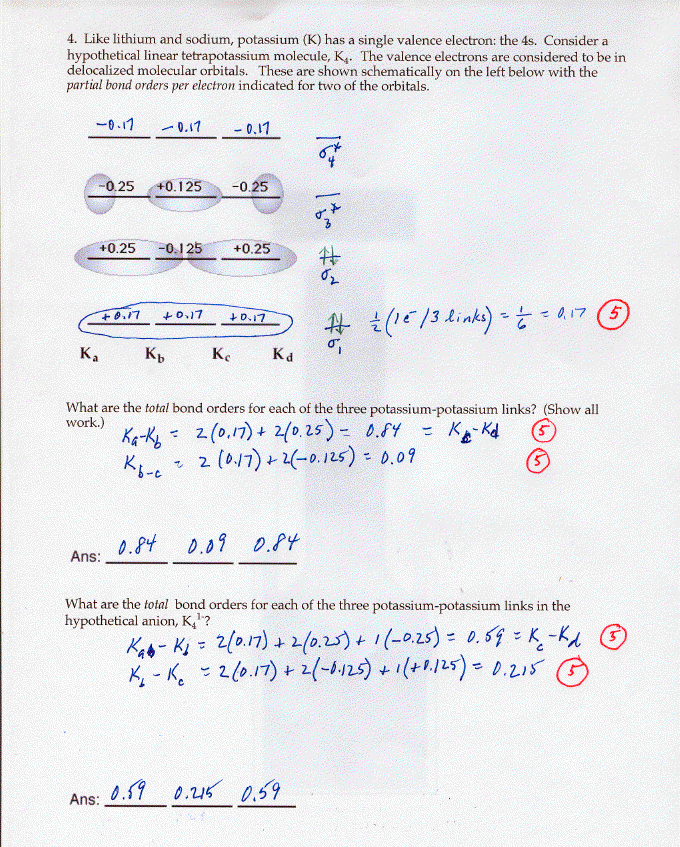 4. Like lithium and sodium, potassium (K) has a single valence electron: the 4s. Consider a
hypothetical linear tetrapotassium molecule, K₄. The valence electrons are considered to be in
delocalized molecular orbitals. These are shown schematically on the left below with the
partial bond orders per electron indicated for two of the orbitals.
-0.17 -0.17 -0.17
σ₄*
-0.25 +0.125 -0.25
σ₃*
+0.25 -0.125 +0.25
σ₂
+0.17 +0.17 +0.17
σ₁
½ (1e⁻/3 links) = 1/6 = 0.17 5
Ka Kb Kc Kd
What are the total bond orders for each of the three potassium-potassium links? (Show all
work.)
Ka-Kb = 2(0.17) + 2(0.25) = 0.84 = Kc-Kd 5
Kb-c = 2(0.17) + 2(-0.125) = 0.09 5
Ans: 0.84 0.09 0.84
What are the total bond orders for each of the three potassium-potassium links in the
hypothetical anion, K₄¹⁻?
Ka-Kb = 2(0.17) + 2(0.25) + 1(-0.25) = 0.59 = Kc-Kd 5
Kb-Kc = 2(0.17) + 2(-0.125) + 1(+0.125) = 0.215 5
Ans: 0.59 0.215 0.59